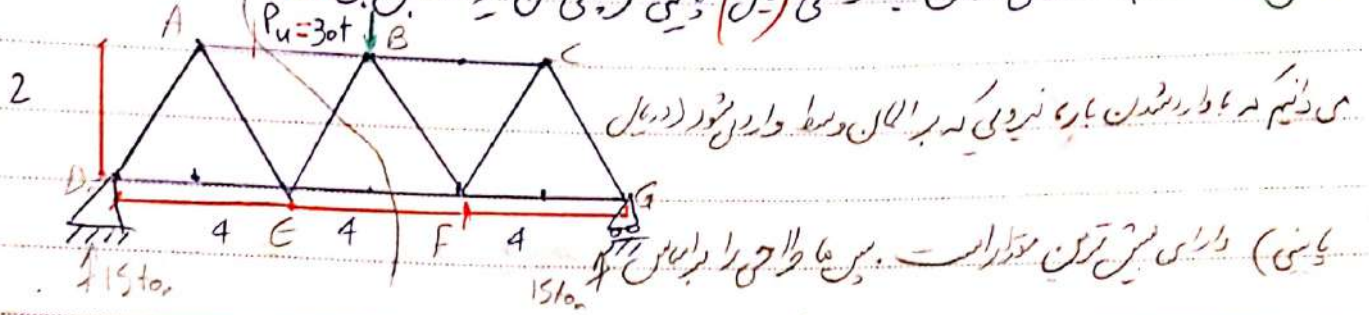 Pu=30t B
A C
2
می دانیم که با وارد شدن بار، نیرویی که بر المان وسط وارد می شود (در یال
D G
4 E 4 F 4
پایینی) دارای بیش ترین مقدار است. پس ما طراحی را براساس
15ton 15ton